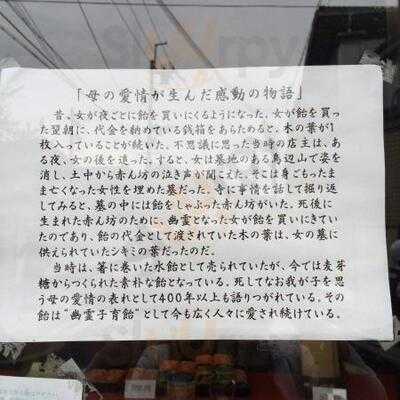 「母の愛情が生んだ感動の物語」
昔、女が夜ごとに飴を買いにくるようになった。女が飴を買っ
た翌朝に、代金を納めている銭箱をあらためると、木の葉が1
枚入っていることが続いた。不思議に思った当時の店主は、あ
る夜、女の後を追った。すると、女は墓地のある鳥辺山で姿を
消し、土中から赤ん坊の泣き声が聞こえた。そこは身ごもったま
ま亡くなった女性を埋めた墓だった。寺に事情を話して掘り返
してみると、墓の中には飴をしゃぶった赤ん坊がいた。死後に
生まれた赤ん坊のために、幽霊となった女が飴を買いにきてい
たのであり、飴の代金として渡されていた木の葉は、女の墓に
供えられていたシキミの葉だったのだ。
当時は、箸に巻いた水飴として売られていたが、今では麦芽
糖からつくられた素朴な飴となっている。死してなお我が子を思
う母の愛情の表れとして400年以上も語りつがれている。その
飴は"幽霊子育飴"として今も広く人々に愛され続けている。